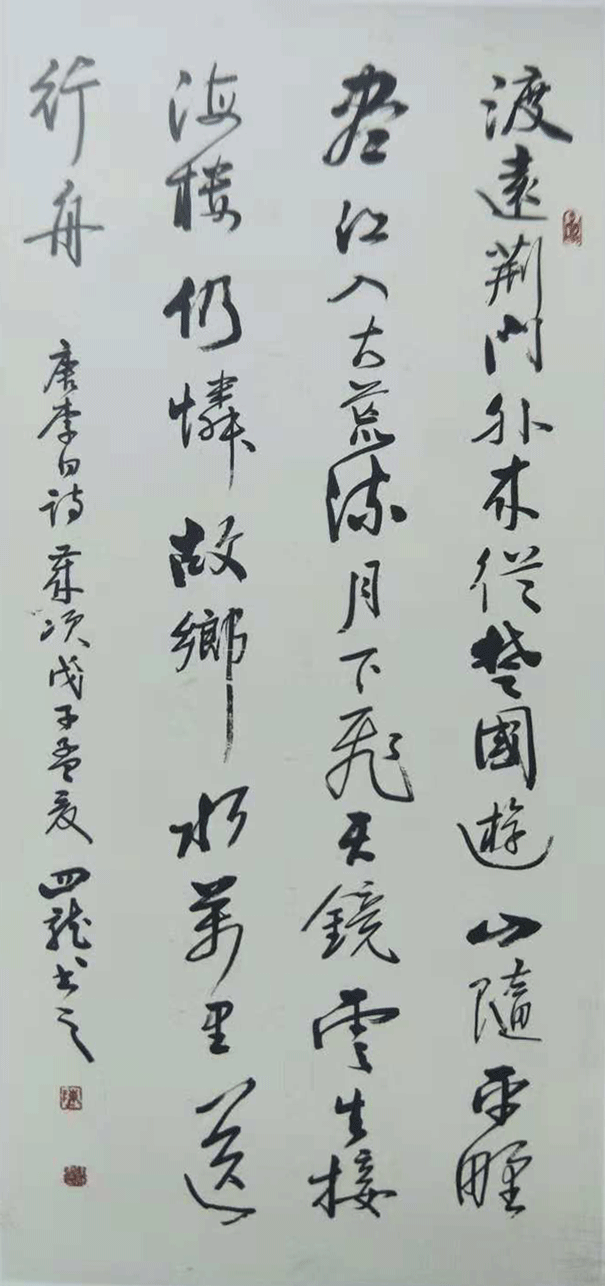 渡遠荆門外来従楚國遊山隨平野
盡江入大荒流月下飛天鏡雲生接
海樓仍憐故鄉水萬里送
行舟 唐李白詩 歲次戊子孟夏 四龍书之